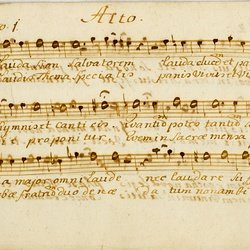 Alto.
Lauda Sion Salvatorem Lauda ducem et pa
Laudis Thema specialis panis vivus et v
hymnis et canticis Quantum potes tantum a
proponitur Quem in Sacrae mensa
a major omni laude nec laudare suf
bae fratrum duodenae Datum non ambi